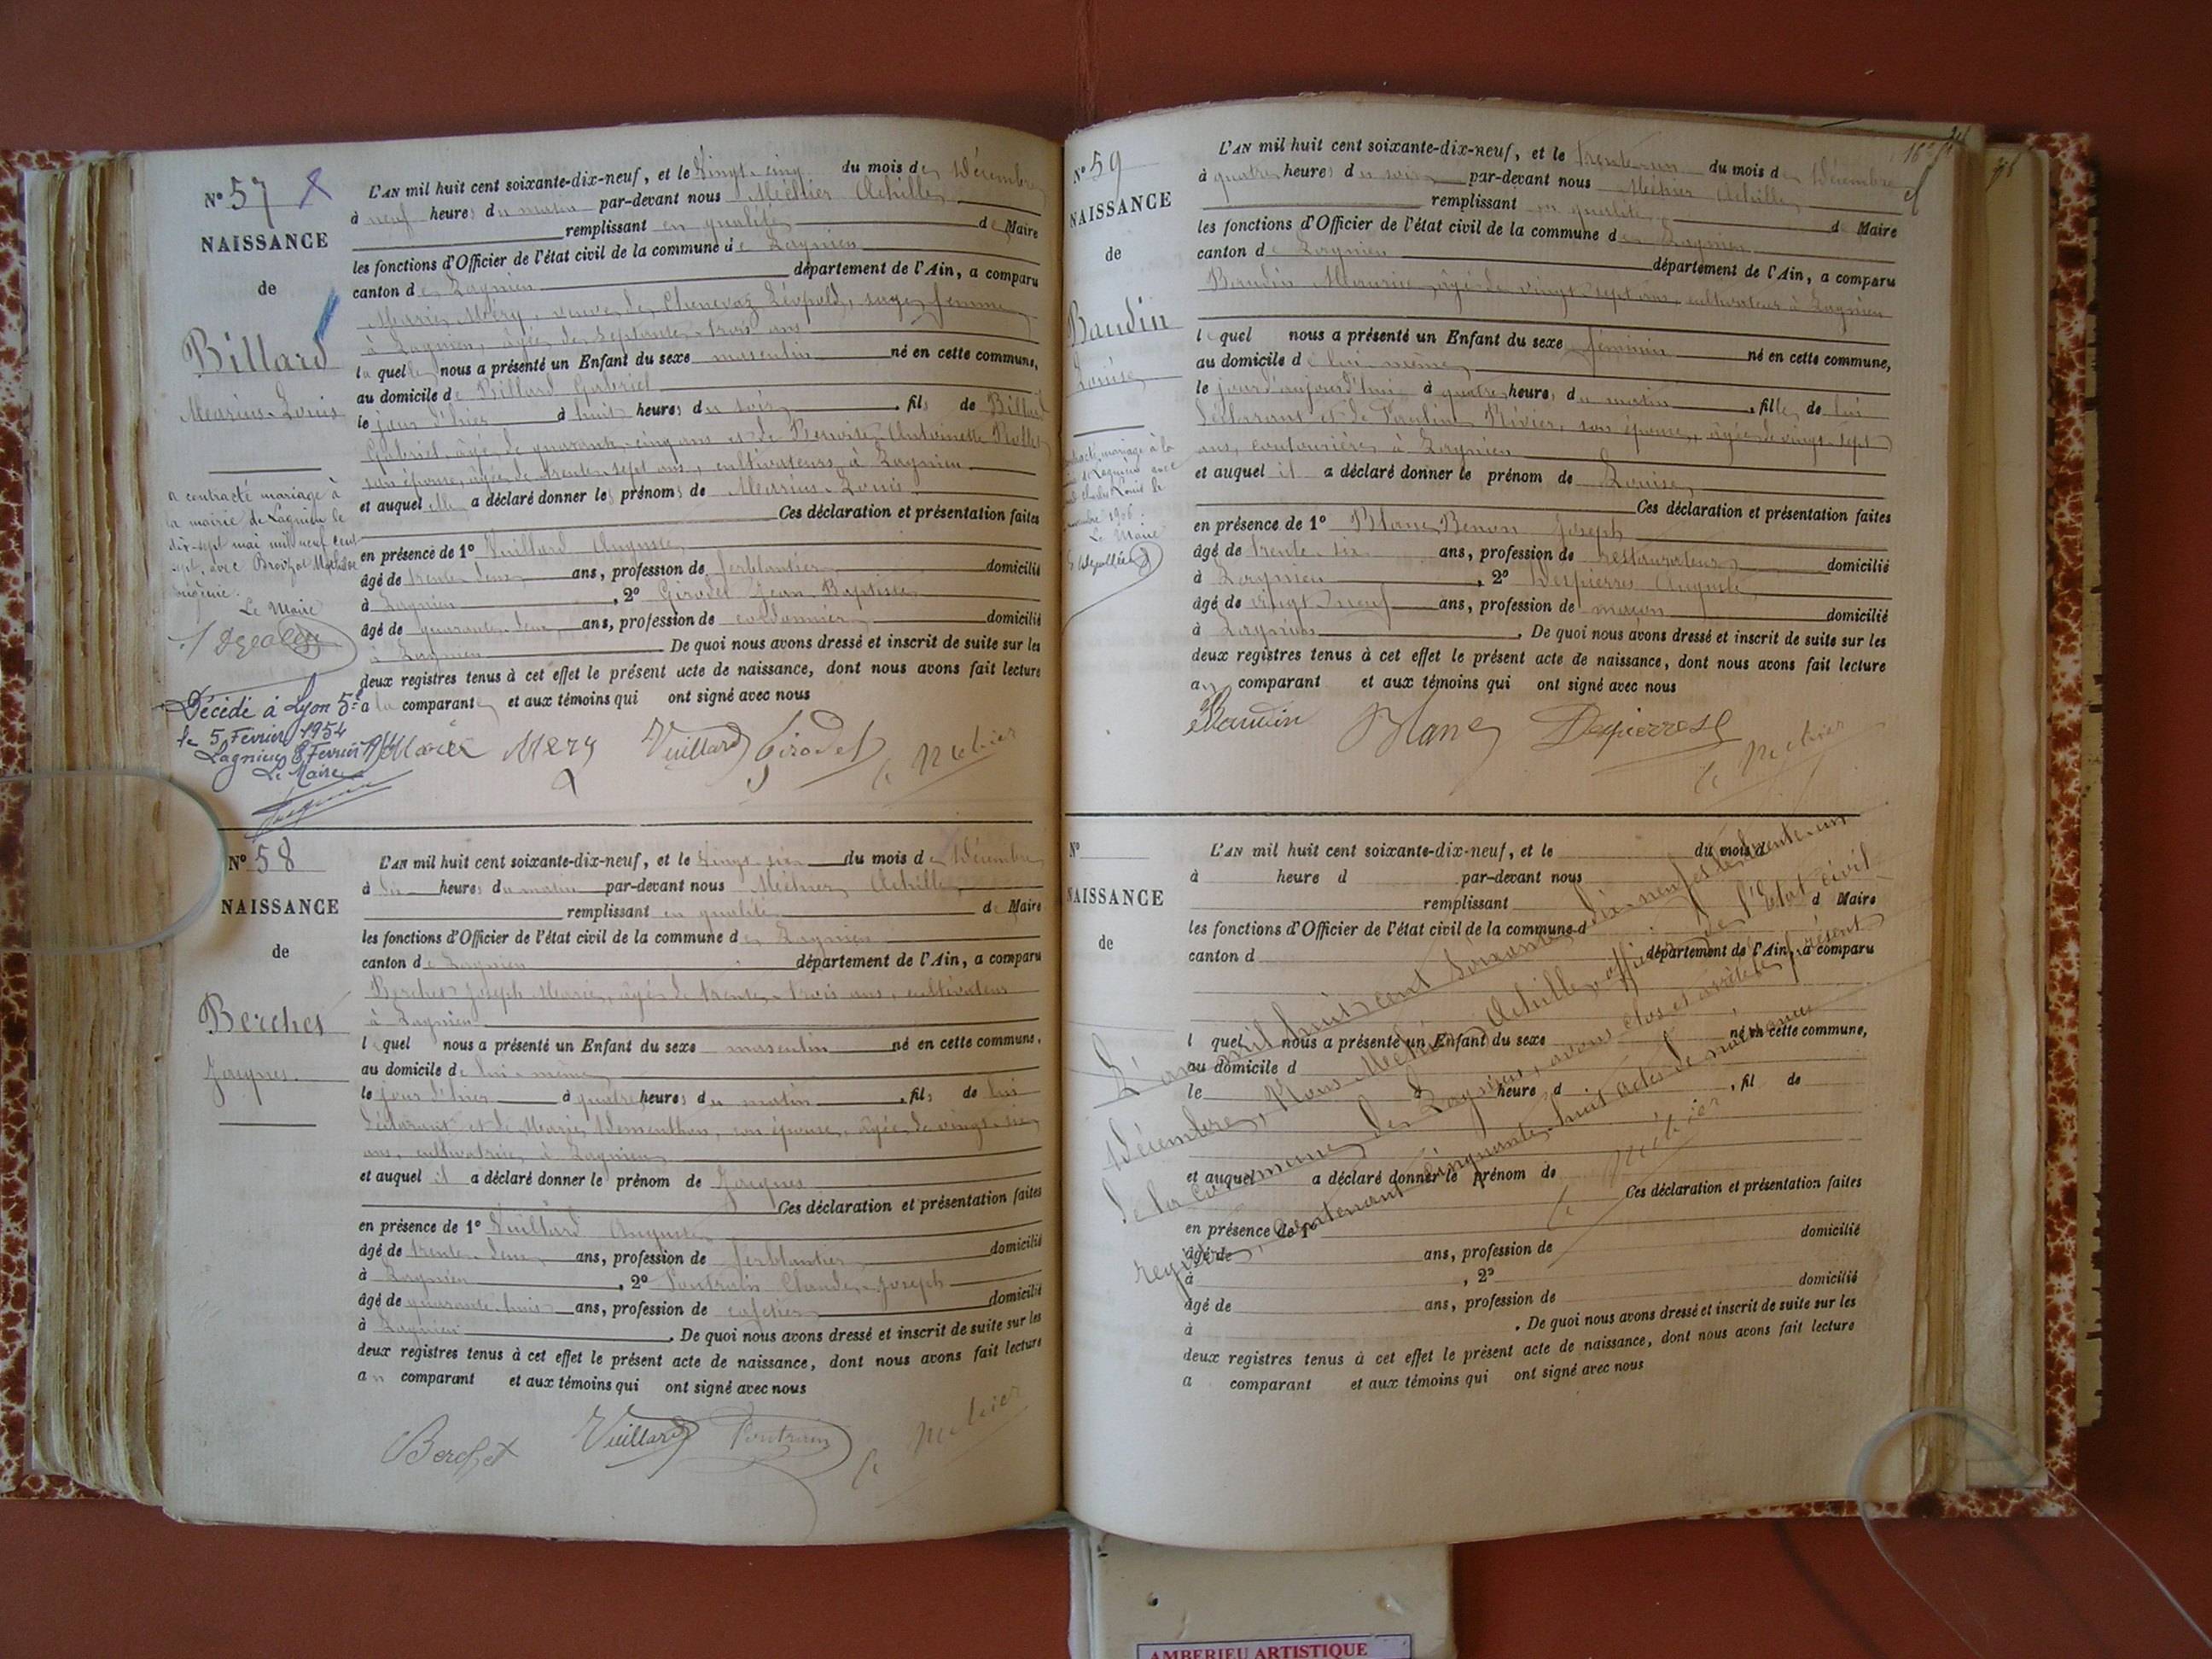 N° 57
NAISSANCE
de
Billard
Marius-Louis
a contracté mariage à
la mairie de Lagnieu le
dix-sept mai mil neuf cent
sept, avec
Le Maire
Décédé à Lyon 5e
le 5 Février 1954
Lagnieu 8 Février
Le Maire
L'AN mil huit cent soixante-dix-neuf, et le Vingt-cinq du mois de Décembre
à neuf heures du matin par-devant nous Méchier Achille
remplissant en qualité de Maire
les fonctions d'Officier de l'état civil de la commune de Lagnieu
canton de Lagnieu département de l'Ain, a comparu
Marie Méry, veuve de Chenevaz Léopold, sage femme
à Lagnieu, âgée de septante-trois ans
laquelle nous a présenté un Enfant du sexe masculin né en cette commune,
au domicile de Billard Gabriel
le jour d'hier à huit heures du soir, fils de Billard
Gabriel, âgé de quarante-cinq ans et de Benoite Antoinette
son épouse, âgée de trente-sept ans, cultivateurs à Lagnieu
et auquel elle a déclaré donner les prénoms de Marius-Louis
Ces déclaration et présentation faites
en présence de 1° Vuillard Auguste
âgé de trente-deux ans, profession de ferblantier domicilié
à Lagnieu, 2° Girodet Jean Baptiste
âgé de quarante-deux ans, profession de cordonnier domicilié
à Lagnieu De quoi nous avons dressé et inscrit de suite sur les
deux registres tenus à cet effet le présent acte de naissance, dont nous avons fait lecture
a la comparante et aux témoins qui ont signé avec nous
Marie Mery Vuillard Girodet Méchier
N° 58
NAISSANCE
de
Berchet
Jacques.
L'AN mil huit cent soixante-dix-neuf, et le Vingt-six du mois de Décembre
à dix heures du matin par-devant nous Méchier Achille
remplissant en qualité de Maire
les fonctions d'Officier de l'état civil de la commune de Lagnieu
canton de Lagnieu département de l'Ain, a comparu
Berchet Joseph Marie, âgé de trente-trois ans, cultivateur
à Lagnieu
lequel nous a présenté un Enfant du sexe masculin né en cette commune,
au domicile de lui-même
le jour d'hier à quatre heures du matin, fils de lui
déclarant et de Marie Dementhon, son épouse, âgée de vingt-six
ans, cultivatrice, à Lagnieu
et auquel il a déclaré donner le prénom de Jacques
Ces déclaration et présentation faites
en présence de 1° Vuillard Auguste
âgé de trente-deux ans, profession de ferblantier domicilié
à Lagnieu, 2° Claude-Joseph
âgé de quarante-huit ans, profession de cafetier domicilié
à Lagnieu. De quoi nous avons dressé et inscrit de suite sur les
deux registres tenus à cet effet le présent acte de naissance, dont nous avons fait lecture
au comparant et aux témoins qui ont signé avec nous
Berchet Vuillard Méchier
N° 59
NAISSANCE
de
Baudin
Louise
mariage à la
de Lagnieu avec
Charles Louis le
1906.
Le Maire
L'AN mil huit cent soixante-dix-neuf, et le trente-un du mois de Décembre
à quatre heures du soir par-devant nous Méchier Achille
remplissant en qualité de Maire
les fonctions d'Officier de l'état civil de la commune de Lagnieu
canton de Lagnieu département de l'Ain, a comparu
Baudin Maurice, âgé de vingt-sept ans, cultivateur à Lagnieu
lequel nous a présenté un Enfant du sexe féminin né en cette commune,
au domicile de lui-même,
le jour d'aujourd'hui à quatre heures du matin, fille de lui
déclarant et de Pauline Rivier, son épouse, âgée de vingt-sept
ans, couturière, à Lagnieu
et auquel il a déclaré donner le prénom de Louise
Ces déclaration et présentation faites
en présence de 1° Blanc Benon Joseph
âgé de trente-six ans, profession de restaurateur domicilié
à Lagnieu, 2° Despierres Auguste
âgé de vingt-neuf ans, profession de maçon domicilié
à Lagnieu. De quoi nous avons dressé et inscrit de suite sur les
deux registres tenus à cet effet le présent acte de naissance, dont nous avons fait lecture
au comparant et aux témoins qui ont signé avec nous
Baudin Blanc Méchier
N°
NAISSANCE
de
L'AN mil huit cent soixante-dix-neuf, et le du mois d
à heure d par-devant nous
remplissant d Maire
les fonctions d'Officier de l'état civil de la commune d
canton d département de l'Ain, a comparu
l quel nous a présenté un Enfant du sexe né en cette commune,
au domicile d
le à heure d , fil de
et auquel a déclaré donner le prénom de
Ces déclaration et présentation faites
en présence de 1°
âgé de ans, profession de domicilié
à , 2°
âgé de ans, profession de domicilié
à . De quoi nous avons dressé et inscrit de suite sur les
deux registres tenus à cet effet le présent acte de naissance, dont nous avons fait lecture
a comparant et aux témoins qui ont signé avec nous
L'an mil huit cent soixante-dix-neuf et le trente-un
Décembre, Nous Méchier Achille, officier de l'Etat civil
de la commune de Lagnieu, avons clos et arrêté le présent
registre, contenant cinquante-huit actes de naissances
Méchier
AMBERIEU ARTISTIQUE